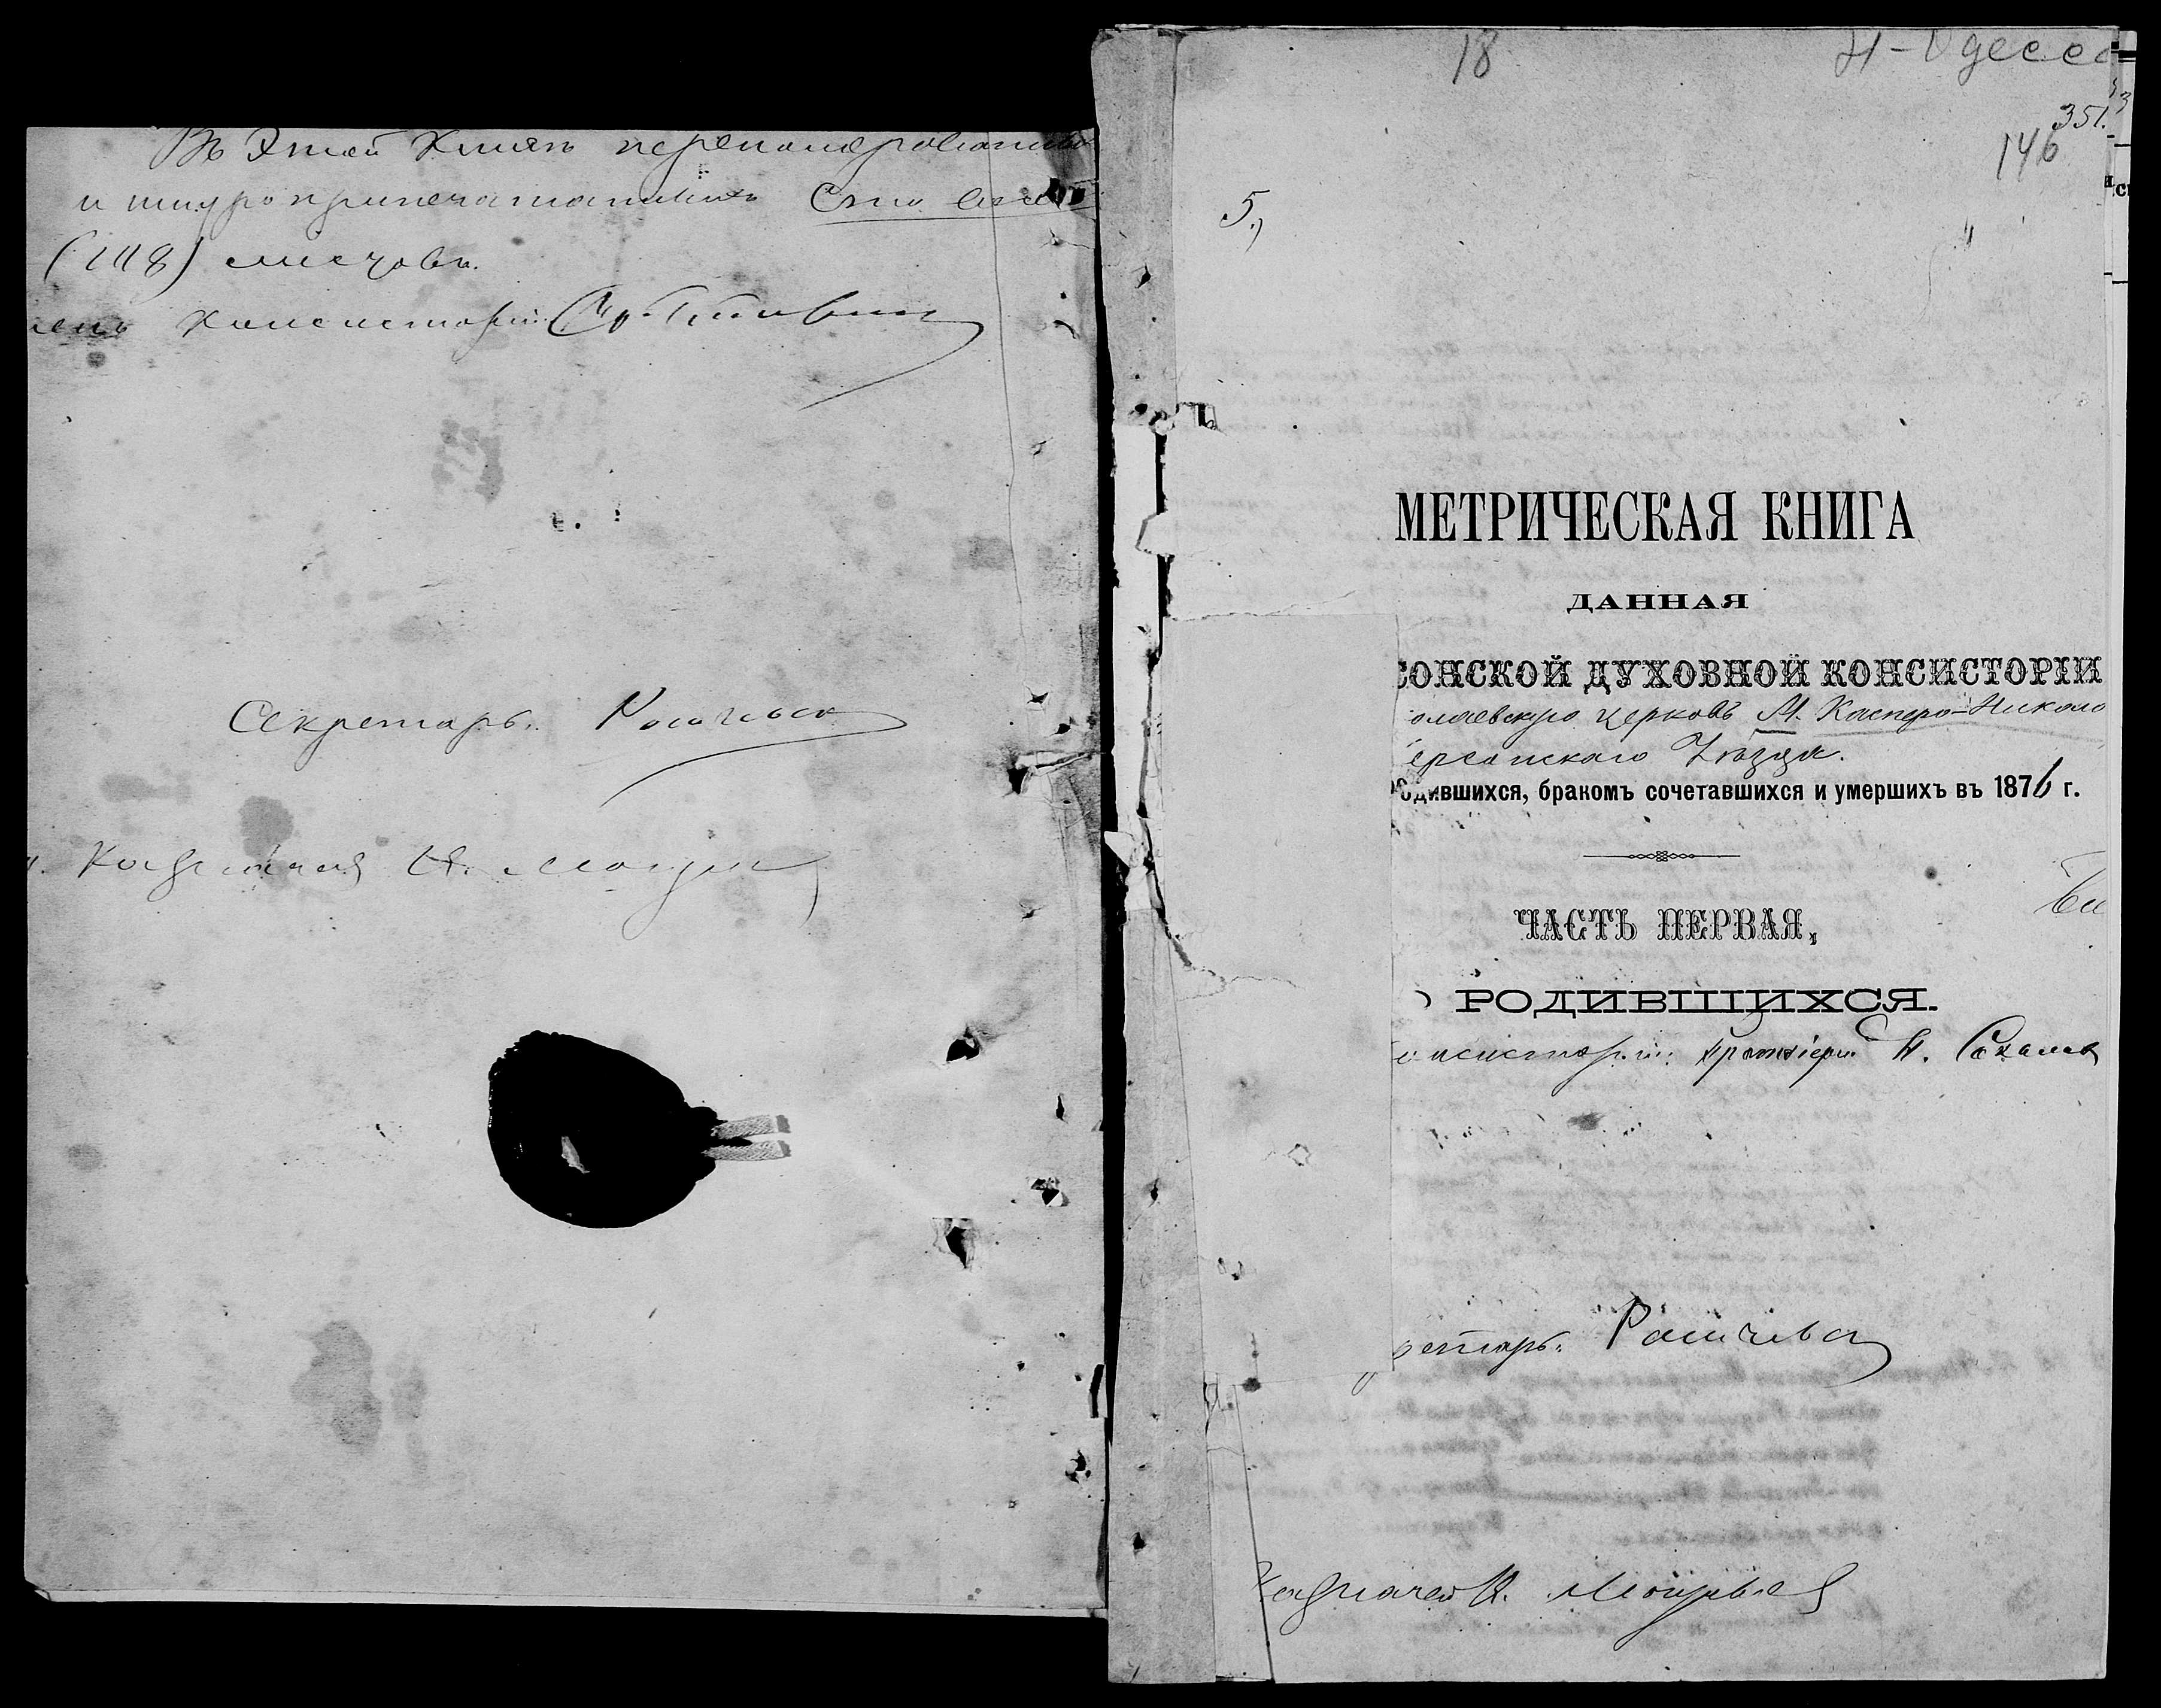 Въ Этой Книгѣ перенумерованныхъ
и шнуроприпечатанныхъ Сто
(118) листовъ.
Консисторіи
Секретарь
Казначей
18
Н-Одесса
351.
146
5.)
МЕТРИЧЕСКАЯ КНИГА
ДАННАЯ
СОНСКОЙ ДУХОВНОЙ КОНСИСТОРІИ
олаевскую церковь М. Касперо-Николо
ерсонскаго Уѣзда.
одившихся, бракомъ сочетавшихся и умершихъ въ 1876 г.
ЧАСТЬ ПЕРВАЯ,
О РОДИВШИХСЯ.
онсисторіи Протоіерей
ретарь
Казначей